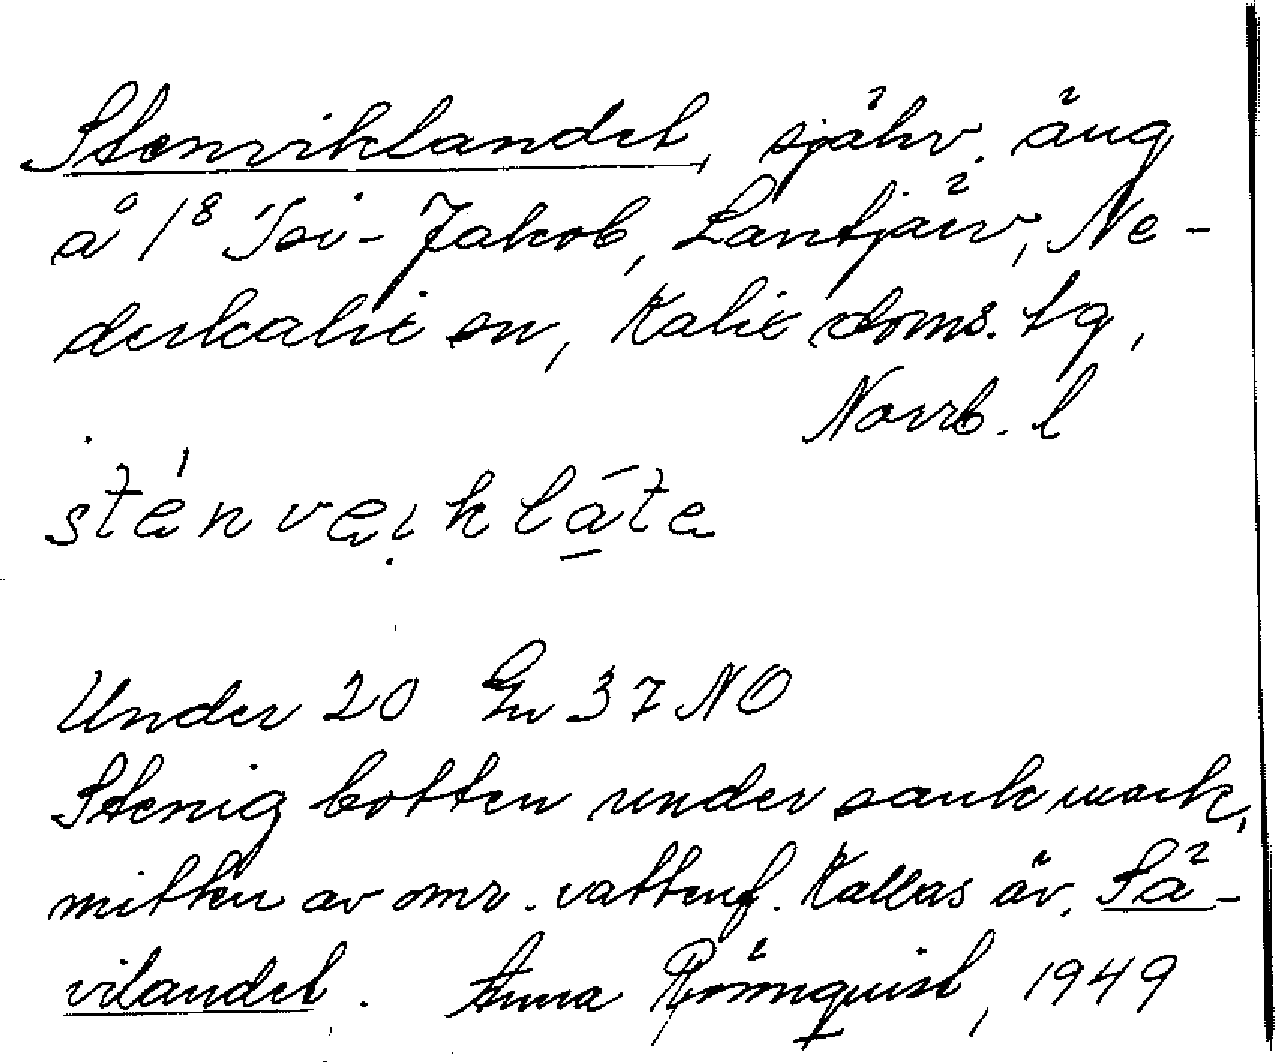 Stenviklandet, själv. äng
å 1⁸ Toi-Jakob, Lantjärv, Ne-
derkalix sn, Kalix doms. tg,
Norrb. l
sténvei̯klåte
Under 20 Gn 37 NO
Stenig botten under sank mark,
mitten av omr. vattenf. Kallas äv. Sä-
vilandet. Anna Rönnquist, 1949